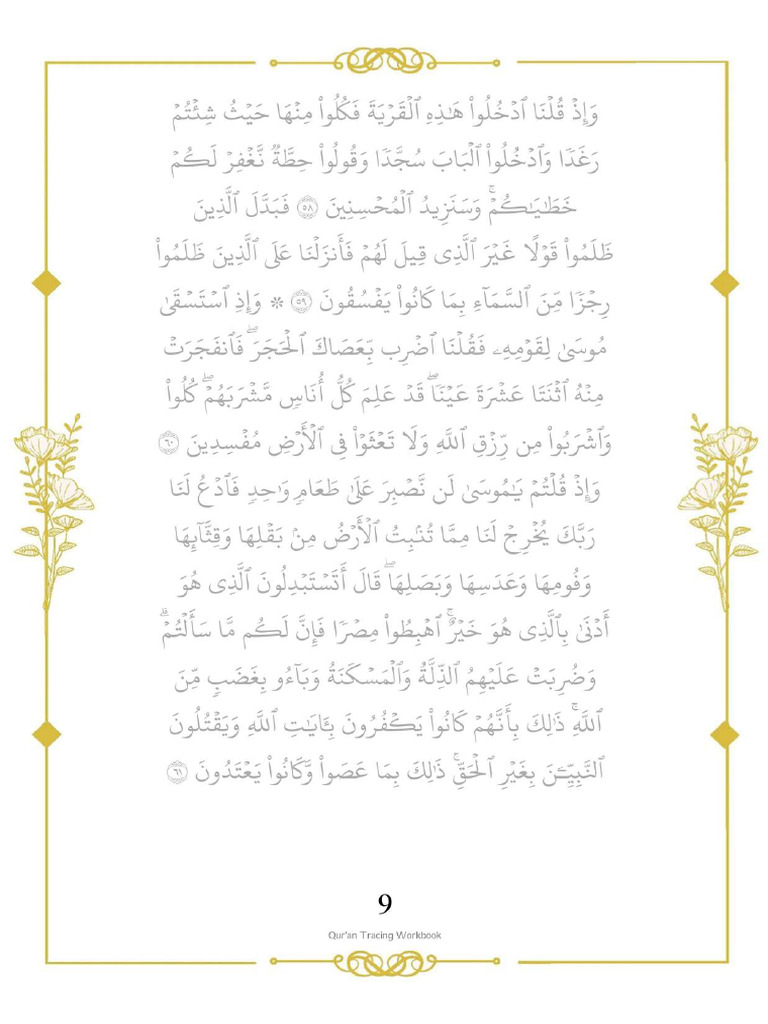 وَإِذْ قُلْنَا ٱدْخُلُوا۟ هَـٰذِهِ ٱلْقَرْيَةَ فَكُلُوا۟ مِنْهَا حَيْثُ شِئْتُمْ
رَغَدًا وَٱدْخُلُوا۟ ٱلْبَابَ سُجَّدًا وَقُولُوا۟ حِطَّةٌ نَّغْفِرْ لَكُمْ
خَطَـٰيَـٰكُمْ ۚ وَسَنَزِيدُ ٱلْمُحْسِنِينَ ٥٨ فَبَدَّلَ ٱلَّذِينَ
ظَلَمُوا۟ قَوْلًا غَيْرَ ٱلَّذِى قِيلَ لَهُمْ فَأَنزَلْنَا عَلَى ٱلَّذِينَ ظَلَمُوا۟
رِجْزًا مِّنَ ٱلسَّمَآءِ بِمَا كَانُوا۟ يَفْسُقُونَ ٥٩ ۞ وَإِذِ ٱسْتَسْقَىٰ
مُوسَىٰ لِقَوْمِهِۦ فَقُلْنَا ٱضْرِب بِّعَصَاكَ ٱلْحَجَرَ ۖ فَٱنفَجَرَتْ
مِنْهُ ٱثْنَتَا عَشْرَةَ عَيْنًا ۖ قَدْ عَلِمَ كُلُّ أُنَاسٍ مَّشْرَبَهُمْ ۖ كُلُوا۟
وَٱشْرَبُوا۟ مِن رِّزْقِ ٱللَّهِ وَلَا تَعْثَوْا۟ فِى ٱلْأَرْضِ مُفْسِدِينَ ٦٠
وَإِذْ قُلْتُمْ يَـٰمُوسَىٰ لَن نَّصْبِرَ عَلَىٰ طَعَامٍ وَٰحِدٍ فَٱدْعُ لَنَا
رَبَّكَ يُخْرِجْ لَنَا مِمَّا تُنۢبِتُ ٱلْأَرْضُ مِنۢ بَقْلِهَا وَقِثَّآئِهَا
وَفُومِهَا وَعَدَسِهَا وَبَصَلِهَا ۖ قَالَ أَتَسْتَبْدِلُونَ ٱلَّذِى هُوَ
أَدْنَىٰ بِٱلَّذِى هُوَ خَيْرٌ ۚ ٱهْبِطُوا۟ مِصْرًا فَإِنَّ لَكُم مَّا سَأَلْتُمْ ۗ
وَضُرِبَتْ عَلَيْهِمُ ٱلذِّلَّةُ وَٱلْمَسْكَنَةُ وَبَآءُو بِغَضَبٍ مِّنَ
ٱللَّهِ ۚ ذَٰلِكَ بِأَنَّهُمْ كَانُوا۟ يَكْفُرُونَ بِـَٔايَـٰتِ ٱللَّهِ وَيَقْتُلُونَ
ٱلنَّبِيِّـۧنَ بِغَيْرِ ٱلْحَقِّ ۚ ذَٰلِكَ بِمَا عَصَوا۟ وَّكَانُوا۟ يَعْتَدُونَ ٦١
9
Qur'an Tracing Workbook